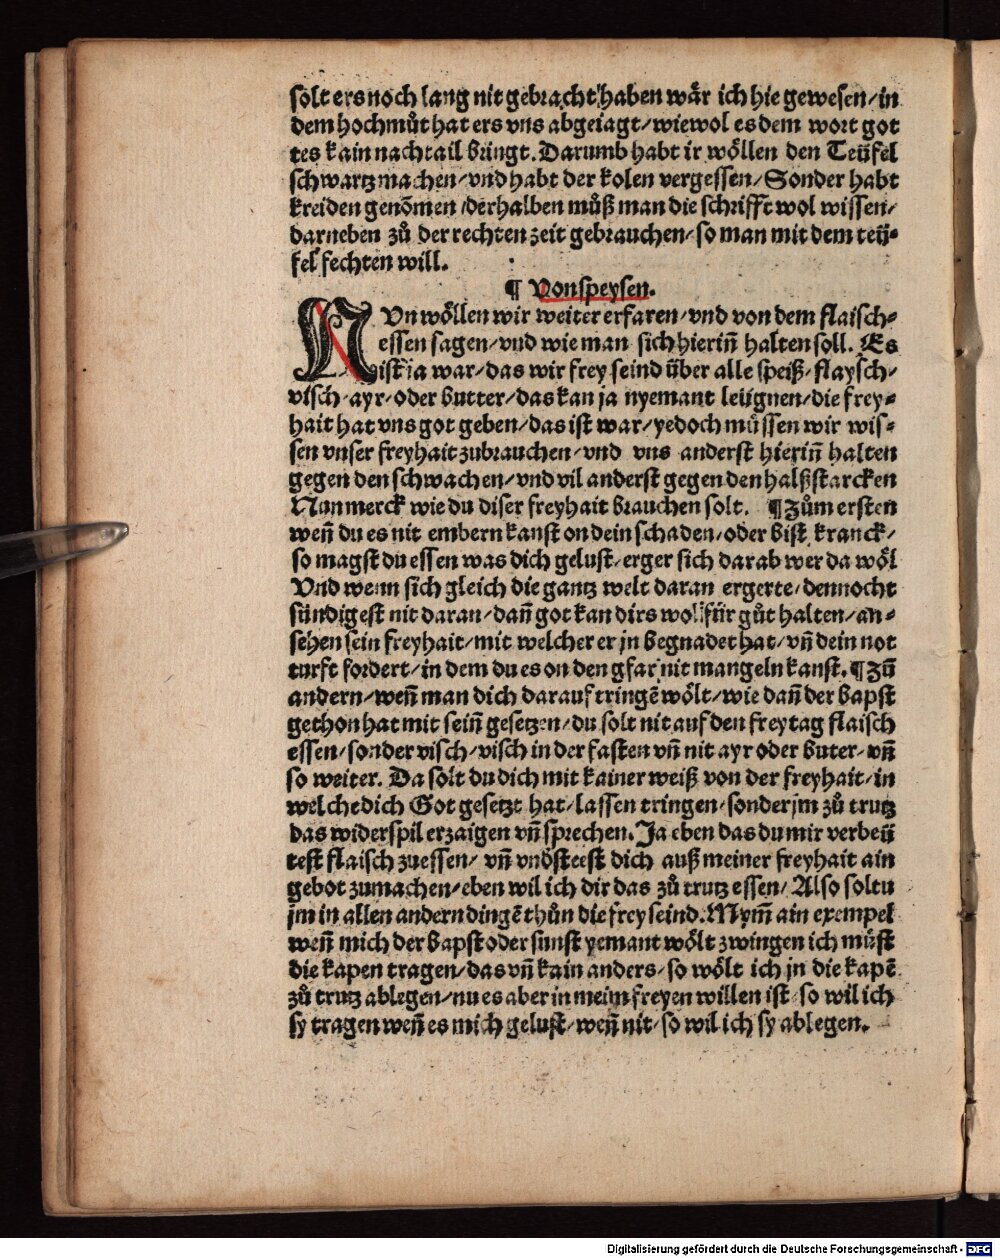 solt ers noch lang nit gebracht haben wår ich hie gewesen/in
dem hochmůt hat ers vns abgeiagt/wiewol es dem wort got
tes kain nachtail bringt. Darumb habt ir wôllen den Teüfel
schwartz machen/vnd habt der kolen vergessen/Sonder habt
kreiden genōmen/derhalben můß man die schrifft wol wissen/
darneben zů der rechten zeit gebrauchen/so man mit dem teü⸗
fel fechten will.
¶ Von speysen.
NVn wôllen wir weiter erfaren/vnd von dem flaisch⸗
essen sagen/vnd wie man sich hierin̄ halten soll. Es
ist ia war/das wir frey seind über alle speiß/flaysch/
visch/ayr/oder butter/das kan ja nyemant leügnen/die frey⸗
hait hat vns got geben/das ist war/yedoch müssen wir wis⸗
sen vnser freyhait zubrauchen/vnd vns anderst hierin̄ halten
gegen den schwachen/vnd vil anderst gegen den halßstarcken
Nun merck wie du diser freyhait brauchen solt. ¶ Zům ersten
wen̄ du es nit embern kanst on dein schaden/oder bist kranck/
so magst du essen was dich gelust/erger sich darab wer da wôl
Vnd wenn sich gleich die gantz welt daran ergerte/dennocht
sündigest nit daran/dan̄ got kan dirs wol für gůt halten/an⸗
sehen sein freyhait/mit welcher er jn begnadet hat/vn̄ dein not
turft fordert/in dem du es on den gfar nit mangeln kanst. ¶ Zů
andern/wen̄ man dich darauf tringē wôlt/wie dan̄ der bapst
gethon hat mit sein̄ gesetzen/du solt nit auf den freytag flaisch
essen/sonder visch/visch in der fasten vn̄ nit ayr oder buter/vn̄
so weiter. Da solt du dich mit kainer weiß von der freyhait/in
welche dich Got gesetzt hat/lassen tringen/sonder jm zů trutz
das widerspil erzaigen vn̄ sprechen. Ja eben das du mir verbeü
test flaisch zuessen/ vn̄ vnd̄steest dich auß meiner freyhait ain
gebot zumachen/eben wil ich dir das zů trutz essen/Also soltu
jm in allen andern dingē thůn die frey seind. Nym̄ ain exempel
wen̄ mich der bapst oder sunst yemant wôlt zwingen ich můst
die kapen tragen/das vn̄ kain anders/so wôlt ich jn die kapē
zů trutz ablegen/nu es aber in meim freyen willen ist/so wil ich
sy tragen wen̄ es mich gelust/wen̄ nit/so wil ich sy ablegen.
Digitalisierung gefördert durch die Deutsche Forschungsgemeinschaft - DFG